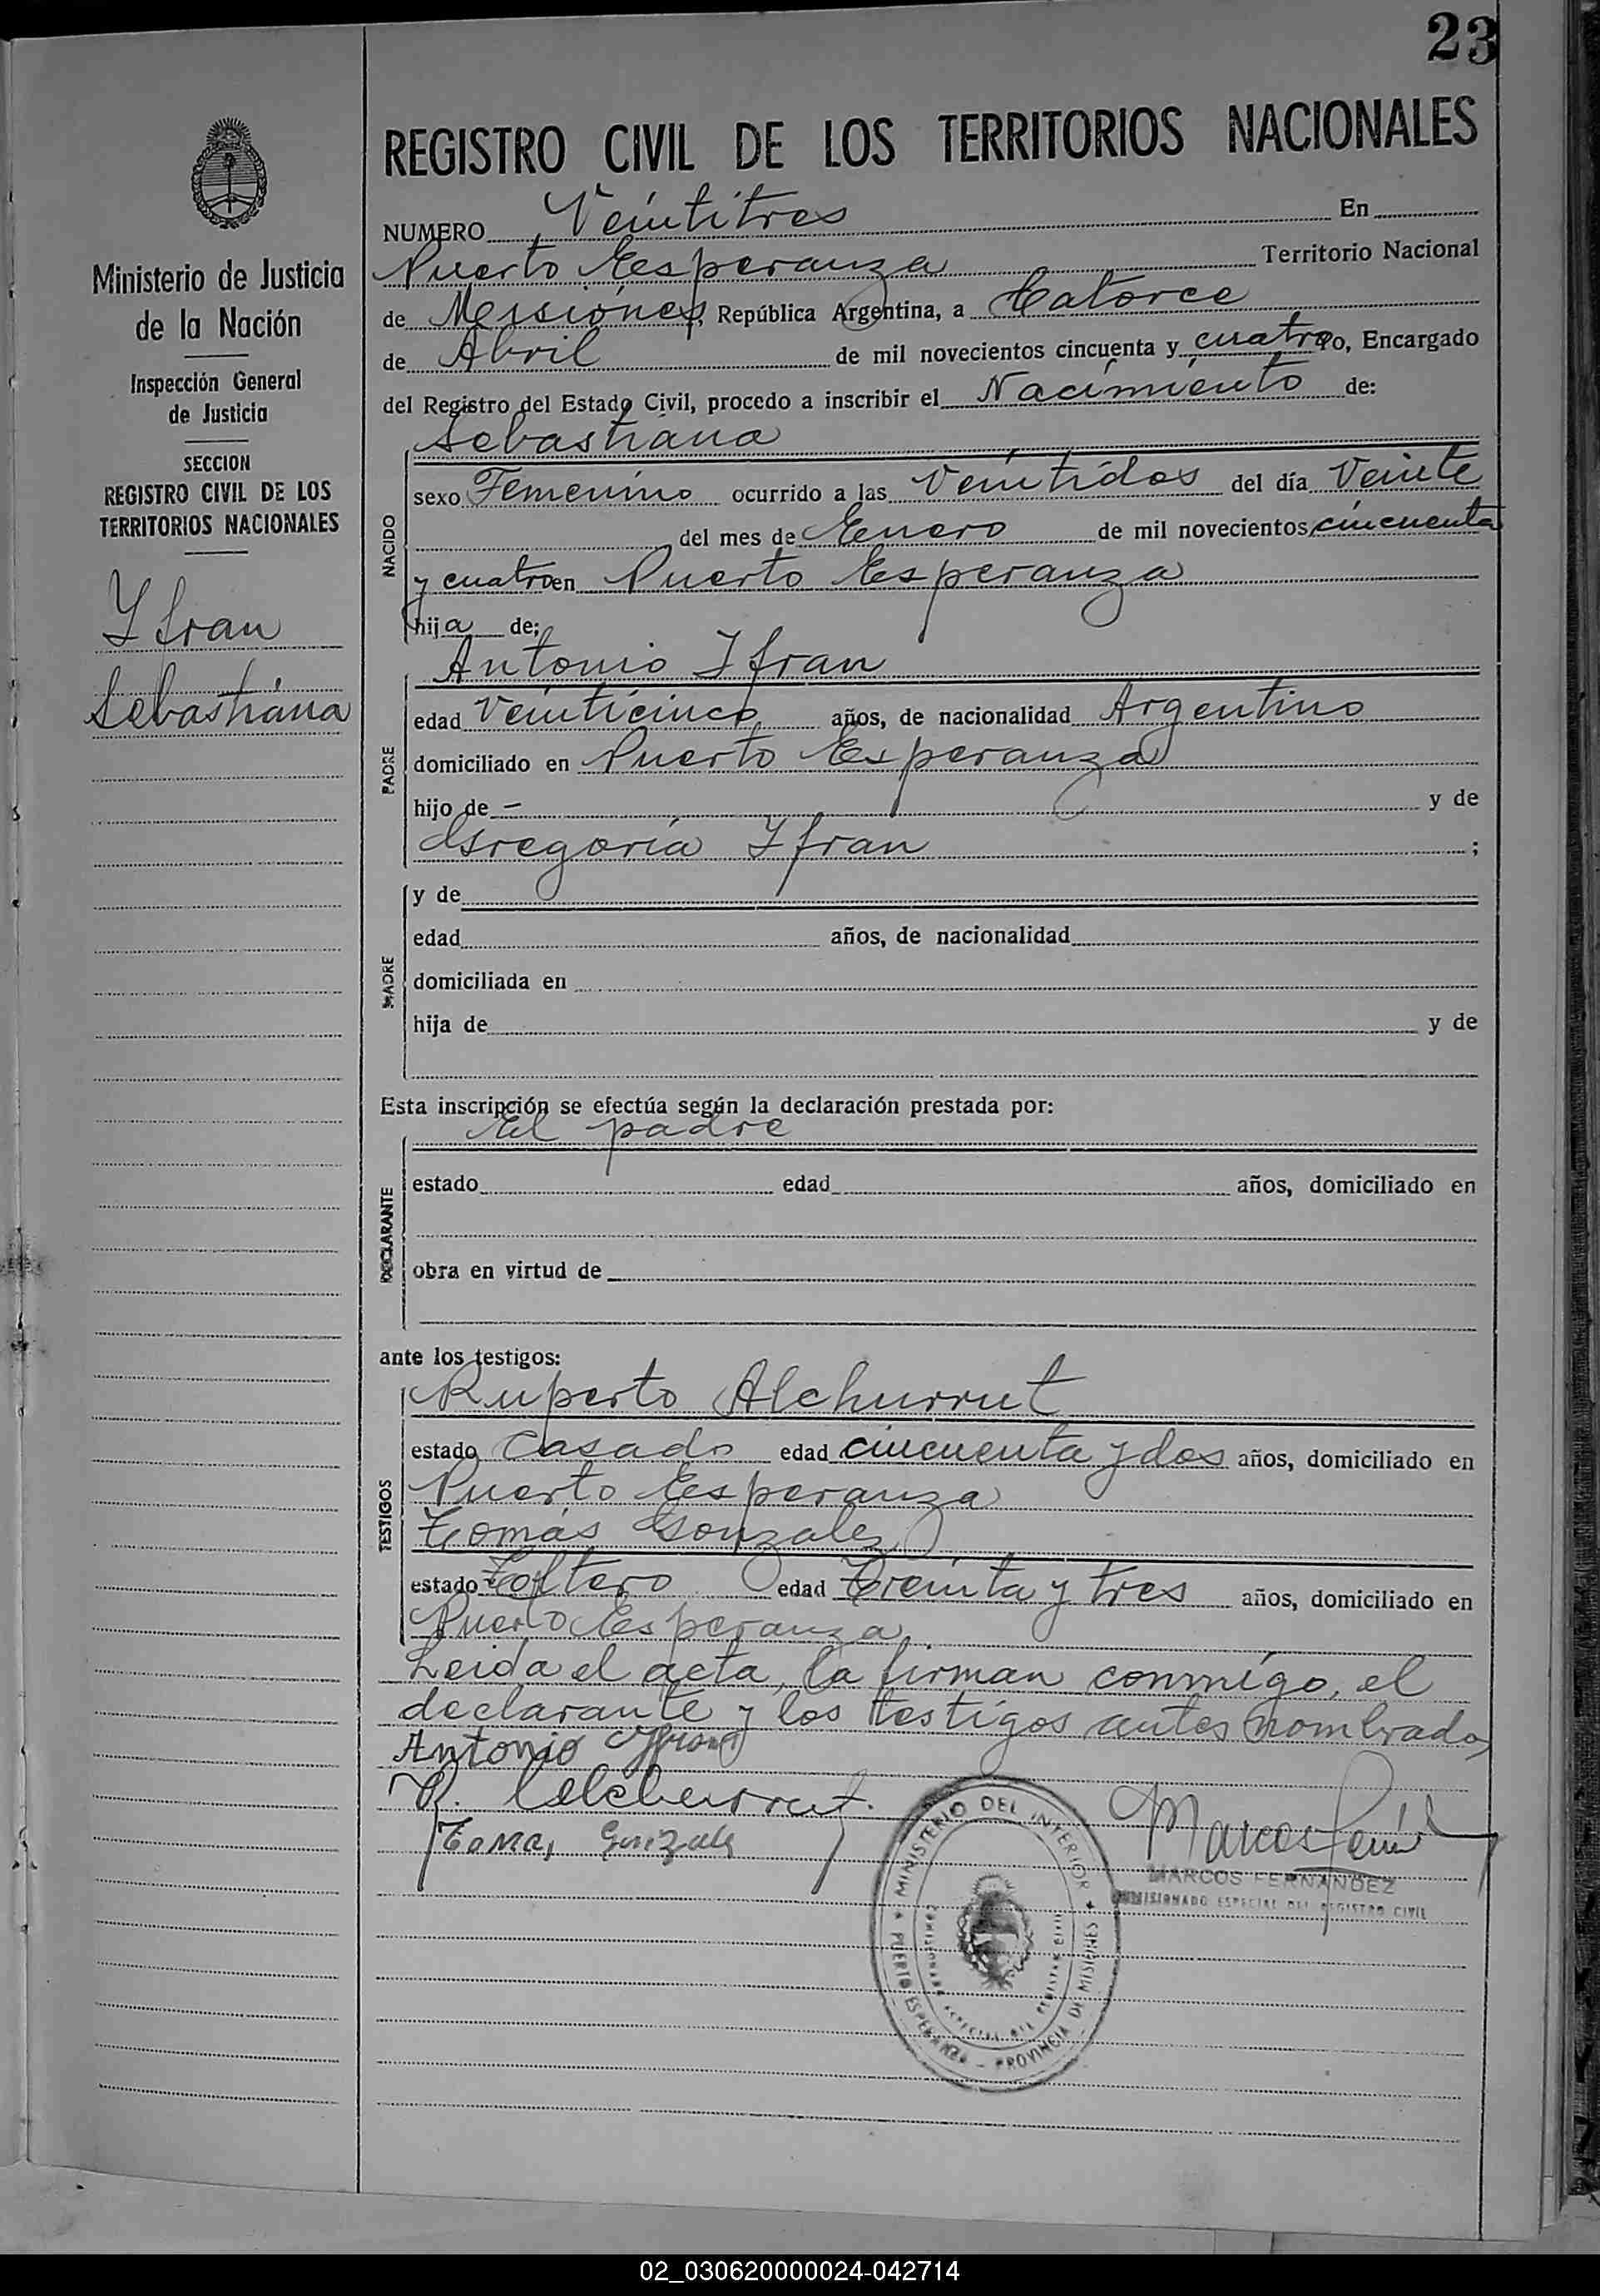 23
REGISTRO CIVIL DE LOS TERRITORIOS NACIONALES
Ministerio de Justicia
de la Nación
Inspección General
de Justicia
SECCION
REGISTRO CIVIL DE LOS
TERRITORIOS NACIONALES
Yfran
Sebastiana
NUMERO Veintitres En
Puerto Esperanza Territorio Nacional
de Misiones, República Argentina, a Catorce
de Abril de mil novecientos cincuenta y cuatro yo, Encargado
del Registro del Estado Civil, procedo a inscribir el Nacimiento de:
NACIDO
Sebastiana
sexo Femenino ocurrido a las Veintidos del día Veinte
del mes de Enero de mil novecientos cincuenta
y cuatro en Puerto Esperanza
hija de;
PADRE
Antonio Yfran
edad Veinticinco años, de nacionalidad Argentino
domiciliado en Puerto Esperanza
hijo de - y de
Gregoria Yfran ;
MADRE
y de
edad años, de nacionalidad
domiciliada en
hija de y de
Esta inscripción se efectúa según la declaración prestada por:
DECLARANTE
El padre
estado edad años, domiciliado en
obra en virtud de
ante los testigos:
TESTIGOS
Ruperto Alchurrut
estado Casado edad cincuenta y dos años, domiciliado en
Puerto Esperanza
Tomás Gonzalez
estado Soltero edad Treinta y tres años, domiciliado en
Puerto Esperanza.
Leida el acta, la firman conmigo, el
declarante y los testigos antes nombrados
Antonio Yfran
R. Alchurrut.
Tomas Gonzalez
Marcos
MARCOS FERNANDEZ
COMISIONADO ESPECIAL DEL REGISTRO CIVIL
MINISTERIO DEL INTERIOR
PUERTO ESPERANZA - PROVINCIA DE MISIONES
ESPECIAL DEL REGISTRO CIVIL
02_030620000024-042714